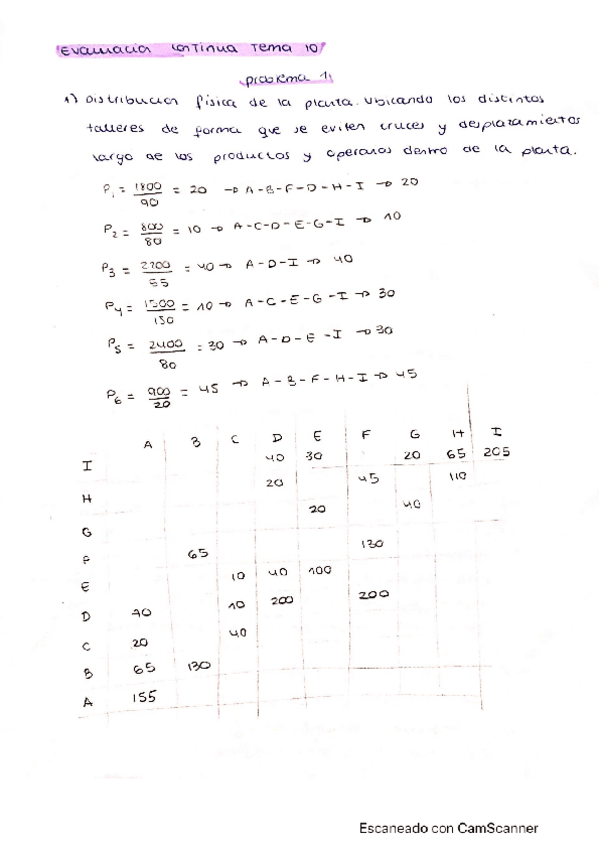 Evaluación continua Tema 10
problema 1.
1) Distribucion física de la planta. Ubicando los distintos
talleres de forma que se eviten cruces y desplazamientos
largo de los productos y operarios dentro de la planta.
P1 = 1800/90 = 20 → A-B-F-D-H-I → 20
P2 = 800/80 = 10 → A-C-D-E-G-I → 10
P3 = 2200/55 = 40 → A-D-I → 40
P4 = 1500/150 = 10 → A-C-E-G-I → 30
P5 = 2400/80 = 30 → A-D-E-I → 30
P6 = 900/20 = 45 → A-B-F-H-I → 45
A B C D E F G H I
I 40 30 20 65 205
H 20 45 110
G 20 40
F 65 130
E 10 40 100
D 70 10 200 200
C 20 40
B 65 130
A 155
Escaneado con CamScanner